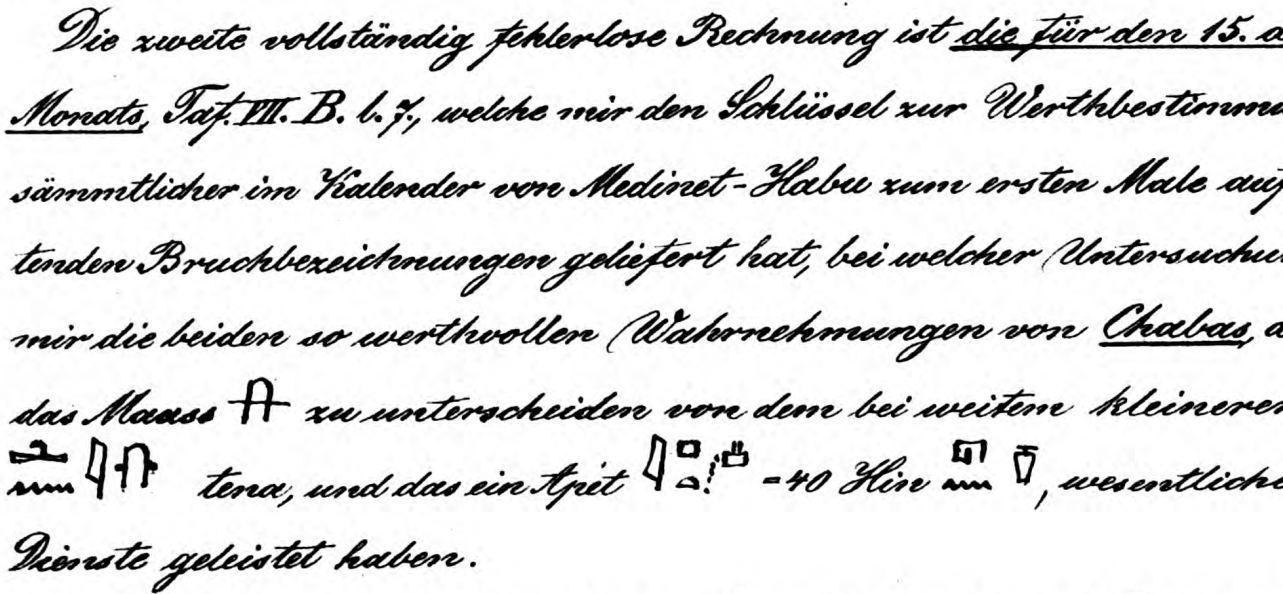 Die zweite vollständig fehlerlose Rechnung ist die für den 15. d
Monats, Taf. VII. B. l. 7., welche mir den Schlüssel zur Werthbestimmu
sämmtlicher im Kalender von Medinet-Habu zum ersten Male auf
tenden Bruchbezeichnungen geliefert hat, bei welcher Untersuchu
mir die beiden so werthvollen Wahrnehmungen von Chabas, d
das Maass zu unterscheiden von dem bei weitem kleineren
tena, und das ein Apet = 40 Hin, wesentliche
Dienste geleistet haben.